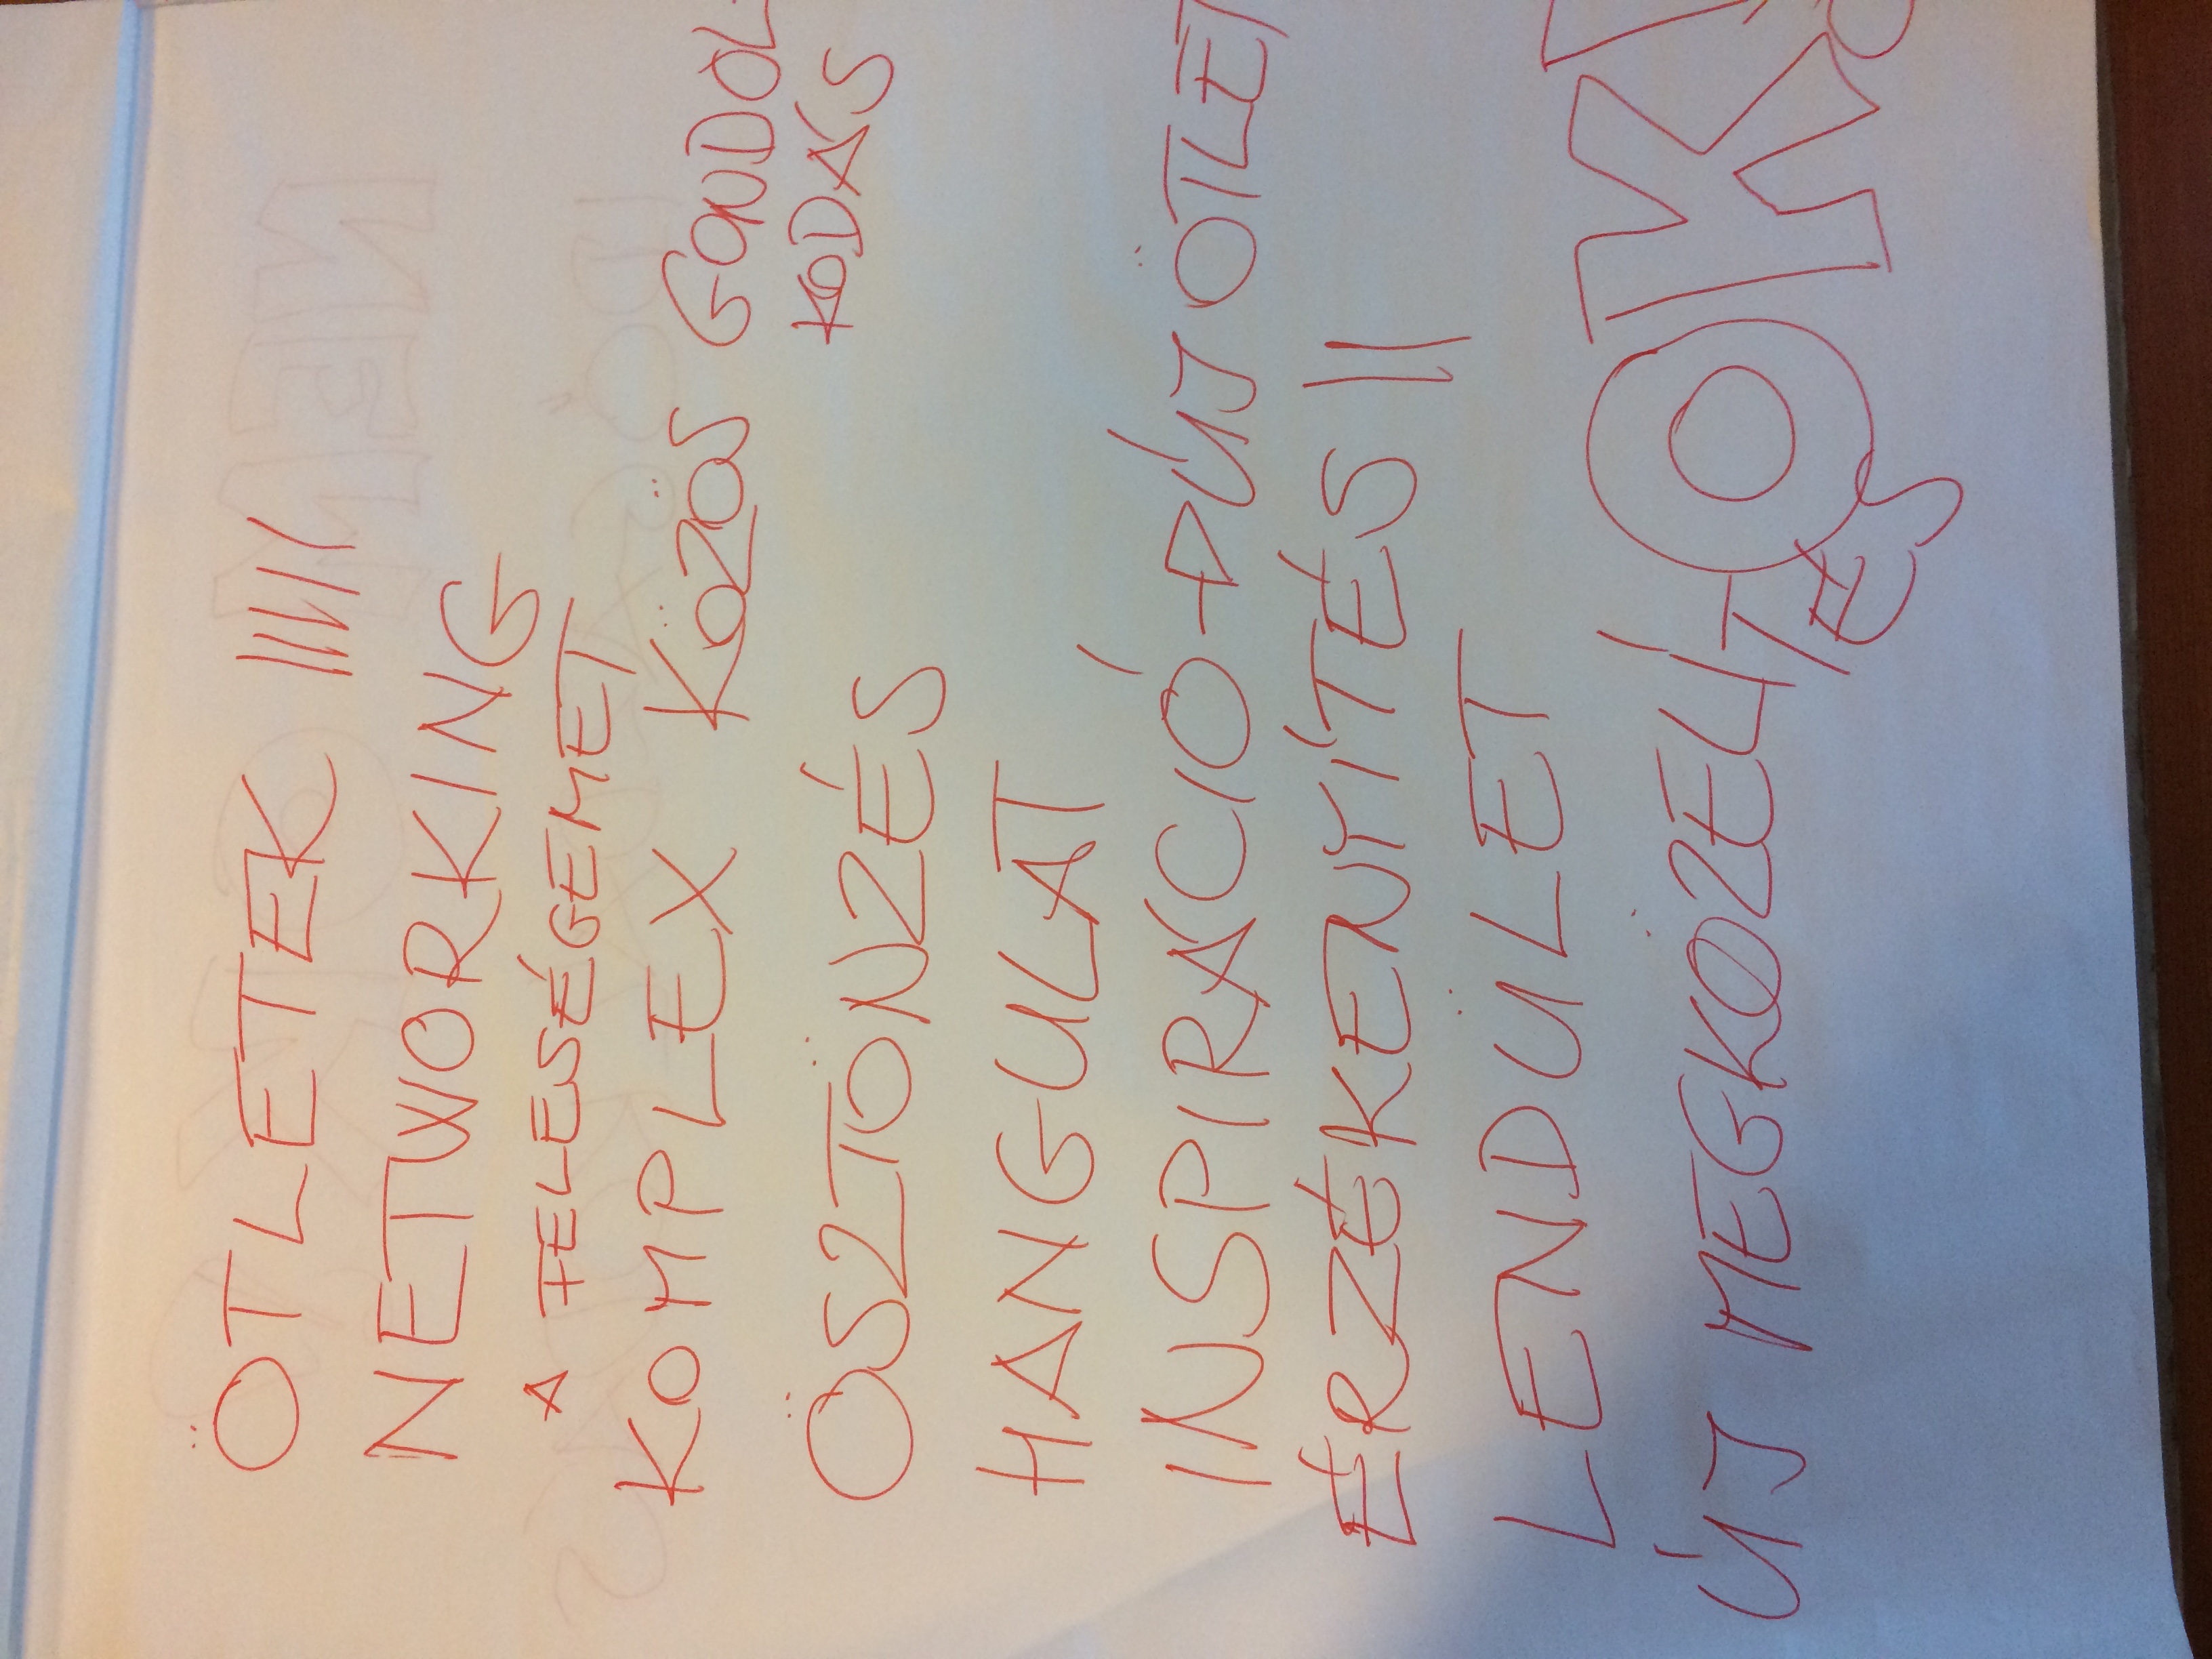 ÖTLETEK ||||
NETWORKING
A FELESÉGEMET
KOMPLEX KÖZÖS GONDOL-
KODÁS
ÖSZTÖNZÉS
HANGULAT
INSPIRÁCIÓ → ÚJ ÖTLET
ÉRZÉKENYÍTÉS ||
LENDÜLET
ÚJ MEGKÖZELÍ-
TÉS
OK